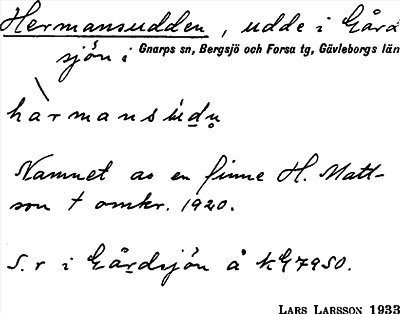 Hermansudden, udde i Gård
sjön i Gnarps sn, Bergsjö och Forsa tg, Gävleborgs län
harmansúdu̥
Namnet av en finne H. Matt-
son † omkr. 1920.
S. r i Gårdsjön å kG7950.
LARS LARSSON 1933